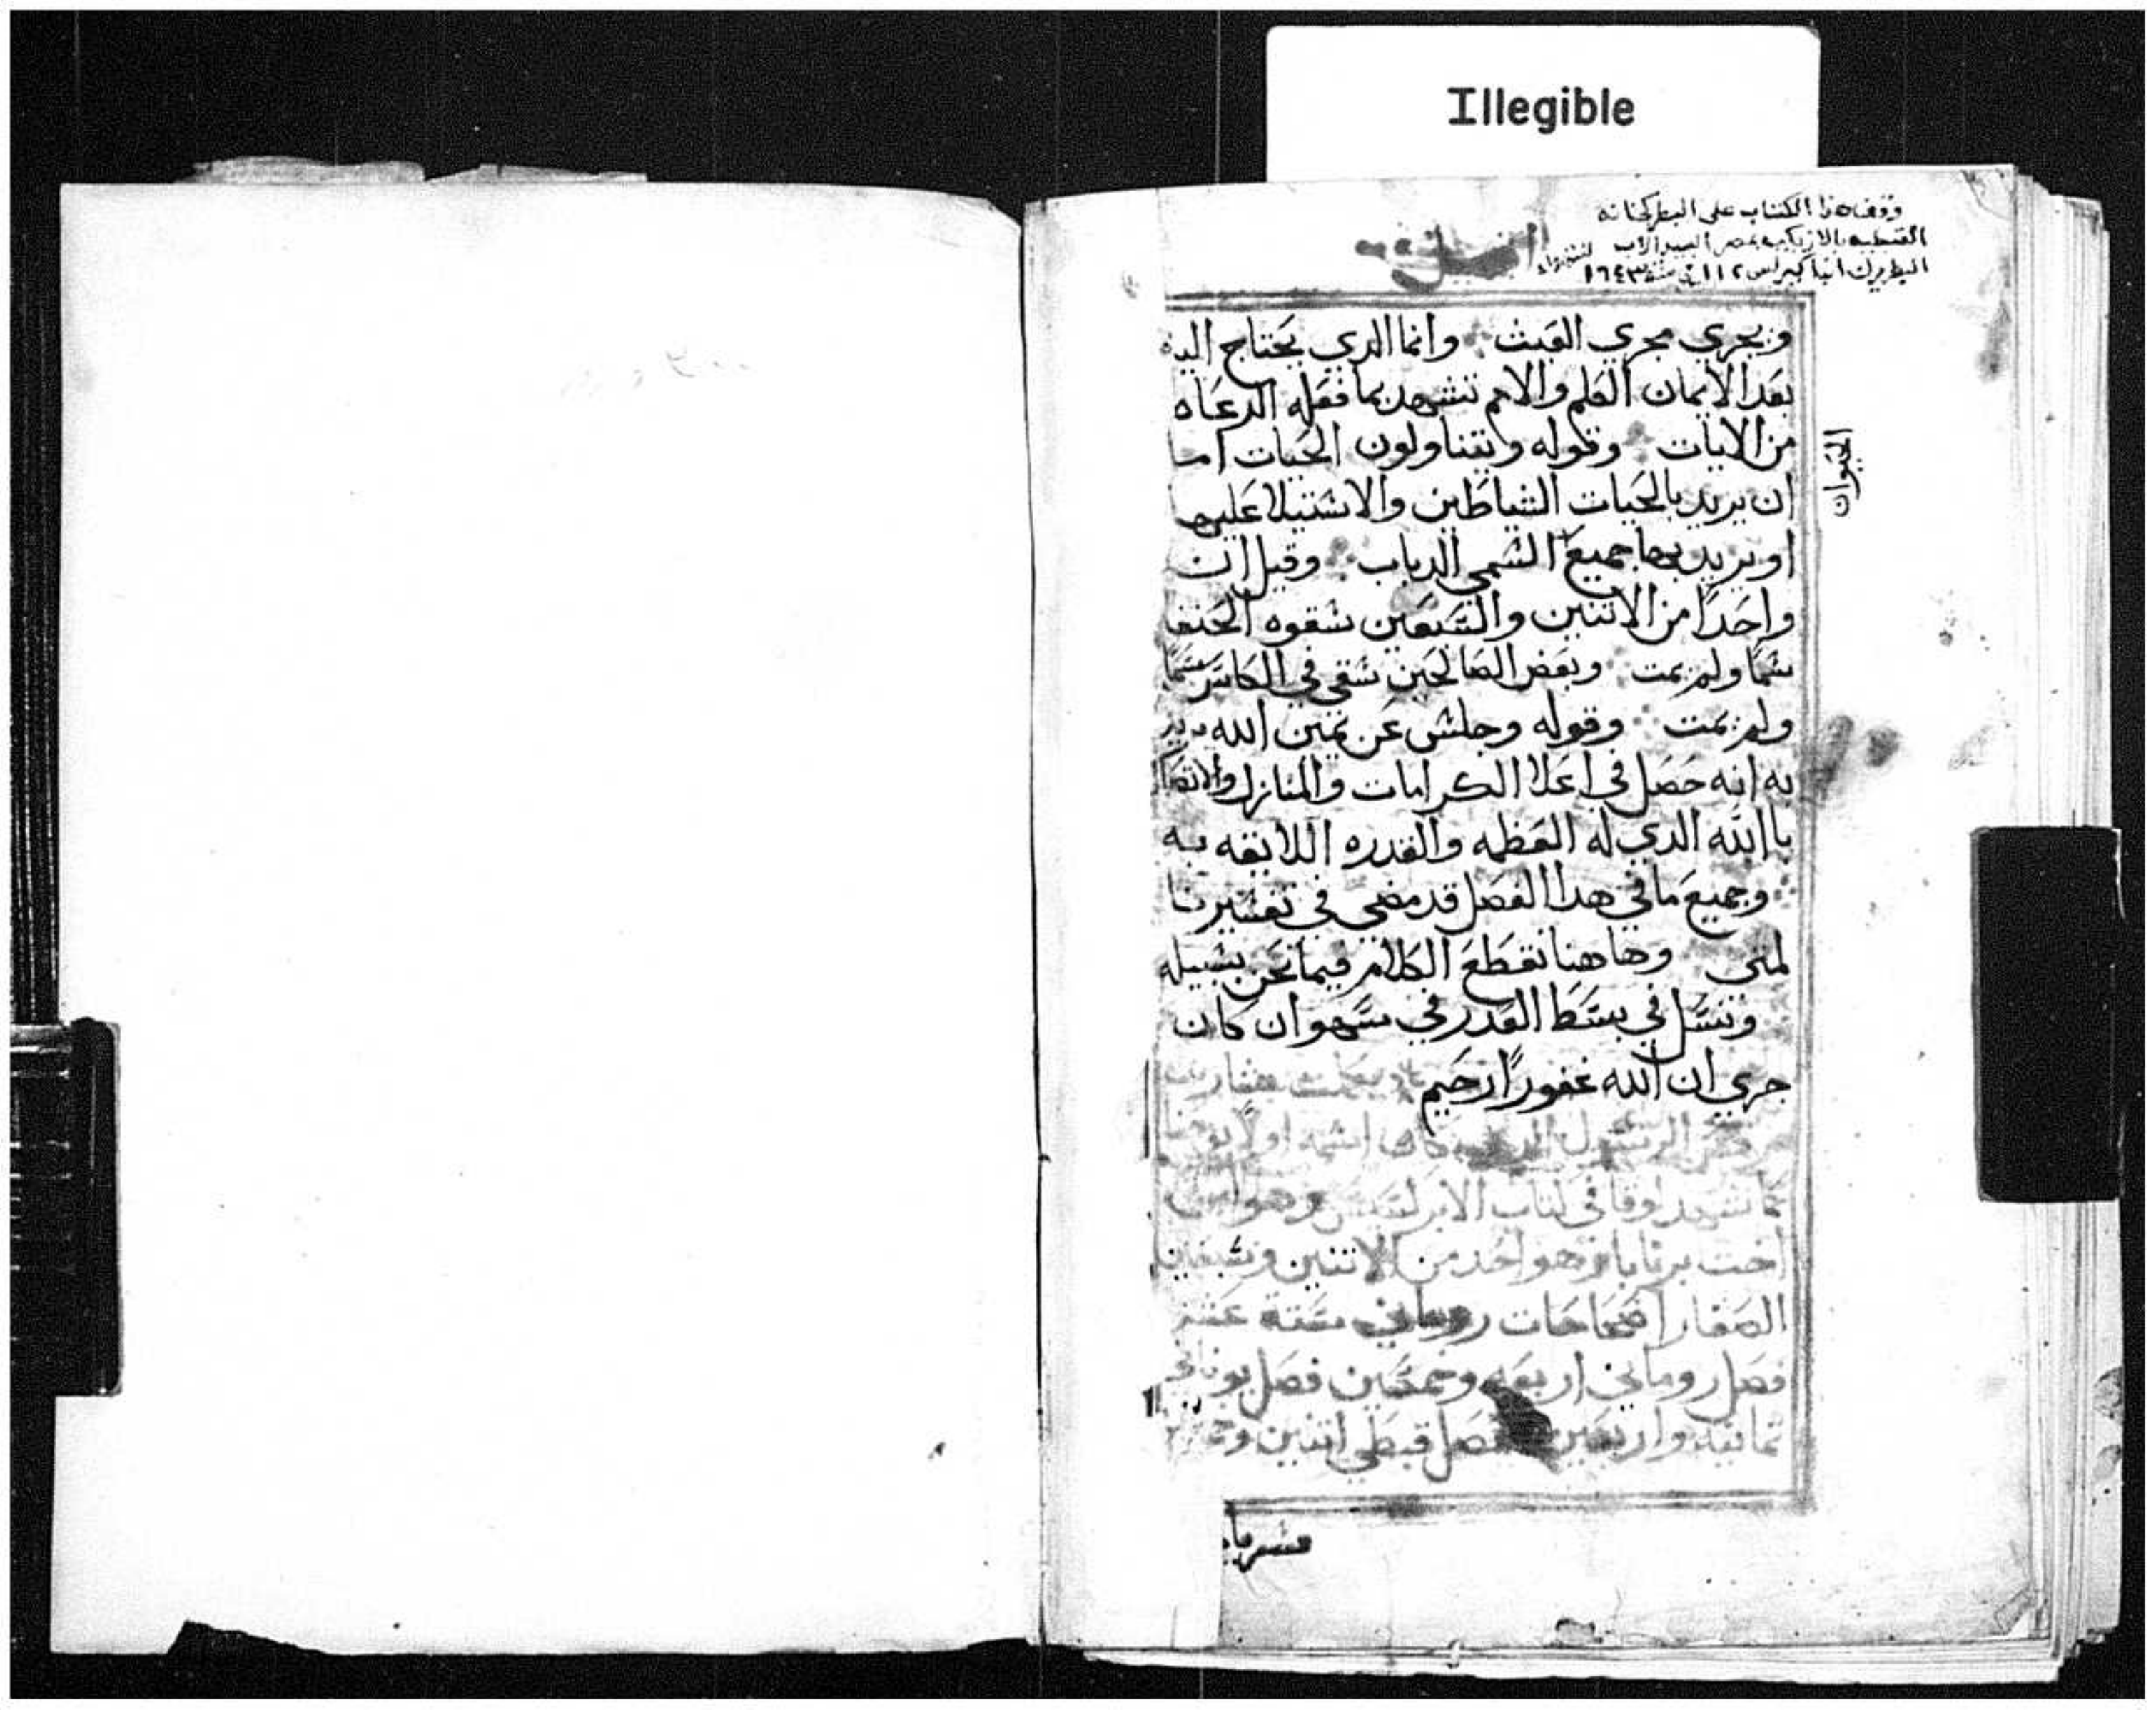 Illegible
وقف هذا الكتاب على البطركخانه
القبطيه بالازبكيه بمصر السيد الاب
البطريرك انبا كيرلس ١١٢ في سنة ١٦٤٣
ويجري مجري العبث وانما الدي يحتاج اليه
بعد الايمان العلم والامم تشهد بما فعله الدعاه
من الايات وقوله ويتناولون الحيات اما
ان يريد بالحيات الشياطين والاستيلا عليها
او يريد بها جميع السمي الدباب وقيل ان
واحدًا من الاتنين والسبعين سقوه الحنفا
سمًا ولم يمت وبعض الصالحين سقي في الكاس سمًا
ولم يمت وقوله وجلس عن يمين الله يريد
به انه حصل في اعلا الكرامات والمنازل
باالله الدي له العظمه والقدره اللايقه به
وجميع ما في هدا الفصل قد مضي في تفسيرنا
لمتى وهاهنا نقطع الكلام فيما نحن بسبيله
ونسل في بسط العدر في سهو ان كان
جري ان الله غفورًا رحيم
الرسول كان اسمه اولا يوحنا
كما شهد لوقا في كتاب الابركسيس وهو ابن
اخت برنابا وهو احد من الاتنين وسبعين
الصغار اصحاحات روماني سته عشر
فصل روماني اربعه وخمسين فصل يوناني
تمانيه واربعين فصل قبطي اتنين
الحيوان